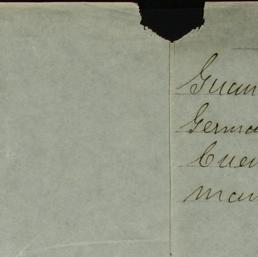 Guan
Germa
Cuen
man